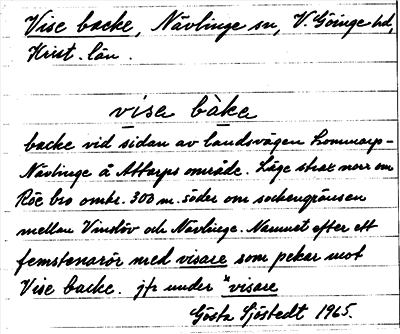 Vise backe, Nävlinge sn, V. Göinge hd,
Krist. län.
visa bàka
backe vid sidan av landsvägen Lommarp-
Nävlinge å Attarps område. Läge strax norr om
Röe bro omkr. 300 m. söder om sockengränsen
mellan Vinslöv och Nävlinge. Namnet efter ett
femstenarör med visare som pekar mot
Vise backe. jfr under "visare
Gösta Sjöstedt 1965.